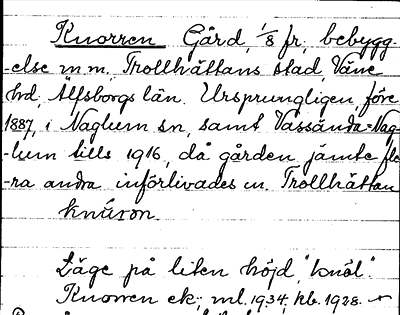 Knorren Gård, 1/8 fr, bebygg-
-else m.m., Trollhättans stad, Väne
hd, Älfsborgs län. Ursprungligen, före
1887, i Naglum sn, samt Vassända-Nag-
-lum tills 1916, då gården jämte fle-
-ra andra införlivades m. Trollhättan
knúron.
Läge på liten höjd, "knöl".
Knorren ek.; ml. 1934, kb. 1928.